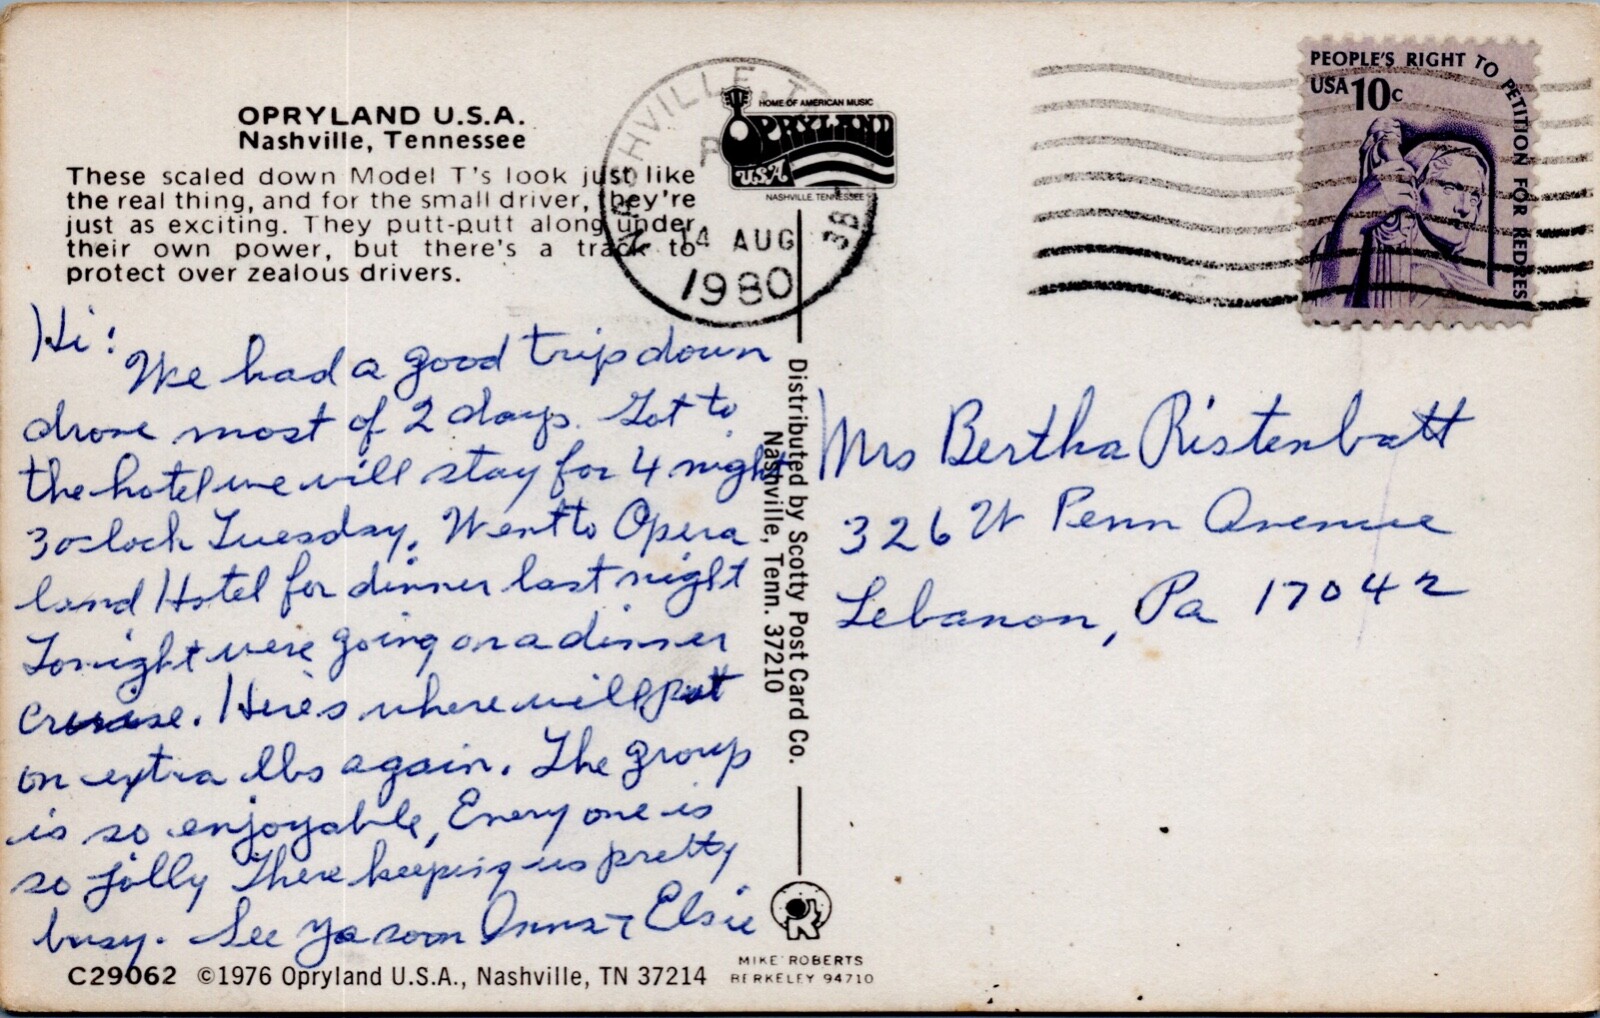 OPRYLAND U.S.A.
Nashville, Tennessee
These scaled down Model T's look just like
the real thing, and for the small driver, they're
just as exciting. They putt-putt along under
their own power, but there's a track to
protect over zealous drivers.
Hi!
We had a good trip down
drove most of 2 days. Got to
the hotel we will stay for 4 night
3 oclock Tuesday. Went to Opera
land Hotel for dinner last night
Tonight were going on a dinner
cruise. Here's where will put
on extra lbs again. The group
is so enjoyable, Every one is
so jolly There keeping us pretty
busy. See ya soon & Elsie
C29062 ©1976 Opryland U.S.A., Nashville, TN 37214
HOME OF AMERICAN MUSIC
OPRYLAND
USA
NASHVILLE, TENNESSEE
NASHVILLE, T
14 AUG
1980
Distributed by Scotty Post Card Co.
Nashville, Tenn. 37210
MIKE ROBERTS
BERKELEY 94710
PEOPLE'S RIGHT TO PETITION FOR REDRESS
USA 10c
Mrs Bertha Ristenbatt
326 W Penn Avenue
Lebanon, Pa 17042